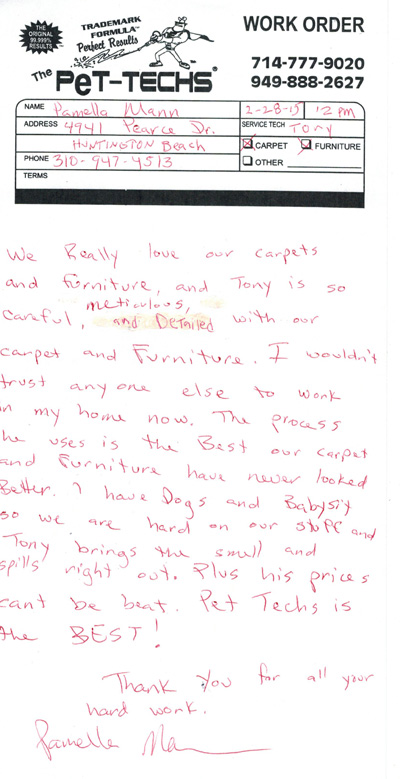 THE ORIGINAL 99.999% RESULTS
TRADEMARK FORMULA™ Perfect Results
The PeT-TECHS
WORK ORDER
714-777-9020
949-888-2627
NAME Pamella Mann 2-28-15 12 pm
ADDRESS 4941 Pearce Dr. SERVICE TECH Tony
Huntington Beach CARPET FURNITURE
PHONE 310-947-4513 OTHER
TERMS
We Really love our carpets
and Furniture, and Tony is so
meticulous,
careful, and Detailed with our
carpet and Furniture. I wouldn't
trust any one else to work
in my home now. The process
he uses is the Best our carpet
and Furniture have never looked
Better. I have Dogs and Babysit
so we are hard on our stuff and
Tony brings the smell and
spills right out. Plus his prices
cant be beat. Pet Techs is
the BEST!
Thank You for all your
hard work.
Pamella Mann